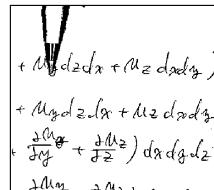 + u_y dzdx + u_z dxdy)
+ u_y dzdx + u_z dxdy
+ ∂u_y/∂y + ∂u_z/∂z ) dxdydz
∂u_y ∂u_z